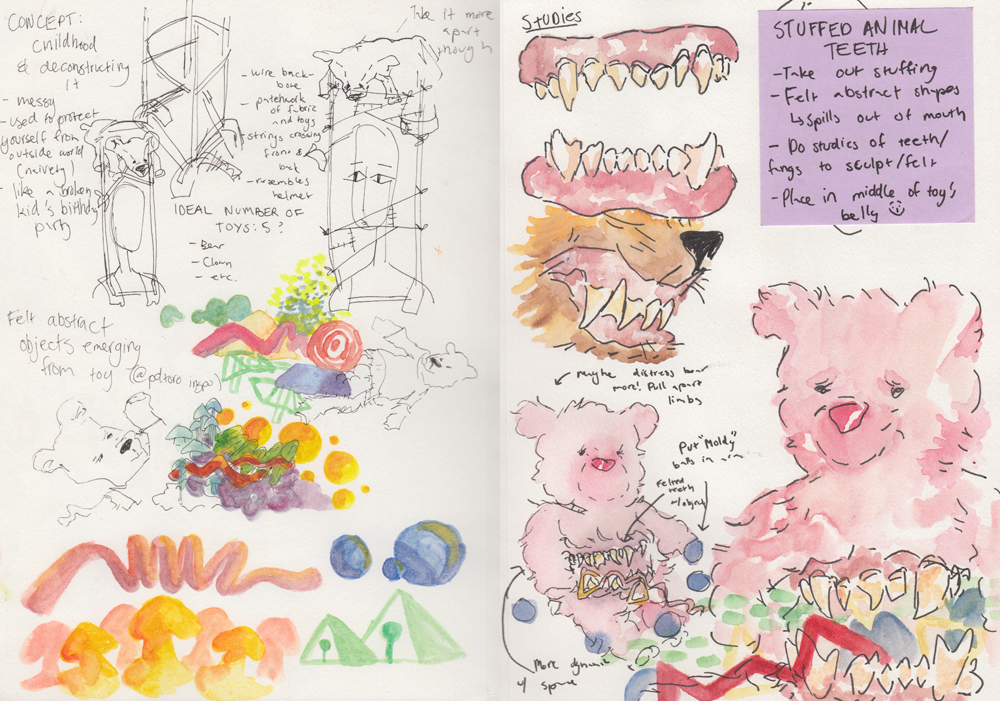 CONCEPT:
Childhood
& deconstructing
it
- messy
- used to protect
yourself from
outside world
(naivety)
- like a broken
kid's birthday
party
Take it more
apart
though
- wire back-
bone
- patchwork
of fabric
and toys
- strings crossing
front &
back
- resembles
helmet
IDEAL NUMBER OF
TOYS: 5?
- Bear
- Clown
- etc.
Felt abstract
objects emerging
from toy (@pdtoro inspo)
Studies
STUFFED ANIMAL
TEETH
- Take out stuffing
- Felt abstract shapes
↳ spills out of mouth
- Do studies of teeth/
fangs to sculpt/felt
- Place in middle of toy's
belly
maybe distress bear
more! Pull apart
limbs
Put "Moldy"
balls in
Felted
teeth
w/ objects
More dynamic
w/